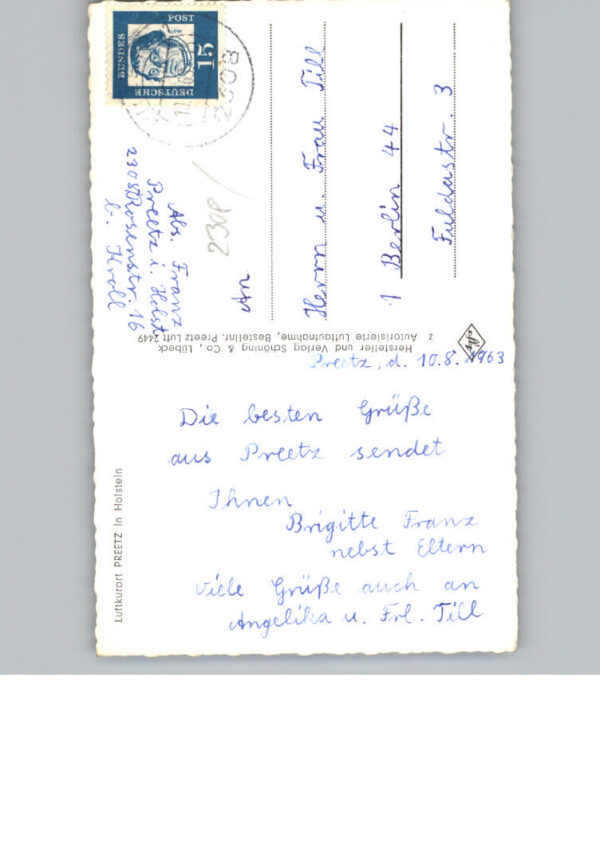 Preetz, d. 10.8.1963
Die besten Grüße
aus Preetz sendet
Ihnen
Brigitte Franz
nebst Eltern
Viele Grüße auch an
Angelika u. Frl. Till
Luftkurort PREETZ in Holstein
Hersteller und Verlag Schöning & Co., Lübeck
Z Autorisierte Luftaufnahme, Bestellnr. Preetz Luft 2449
DEUTSCHE
BUNDES
POST
15
2308
Abs. Franz
Preetz i. Holst
2308 Rosenstr. 16
b. Kroll
2308
An
Herrn u. Frau Till
1 Berlin 44
Fuldastr. 3